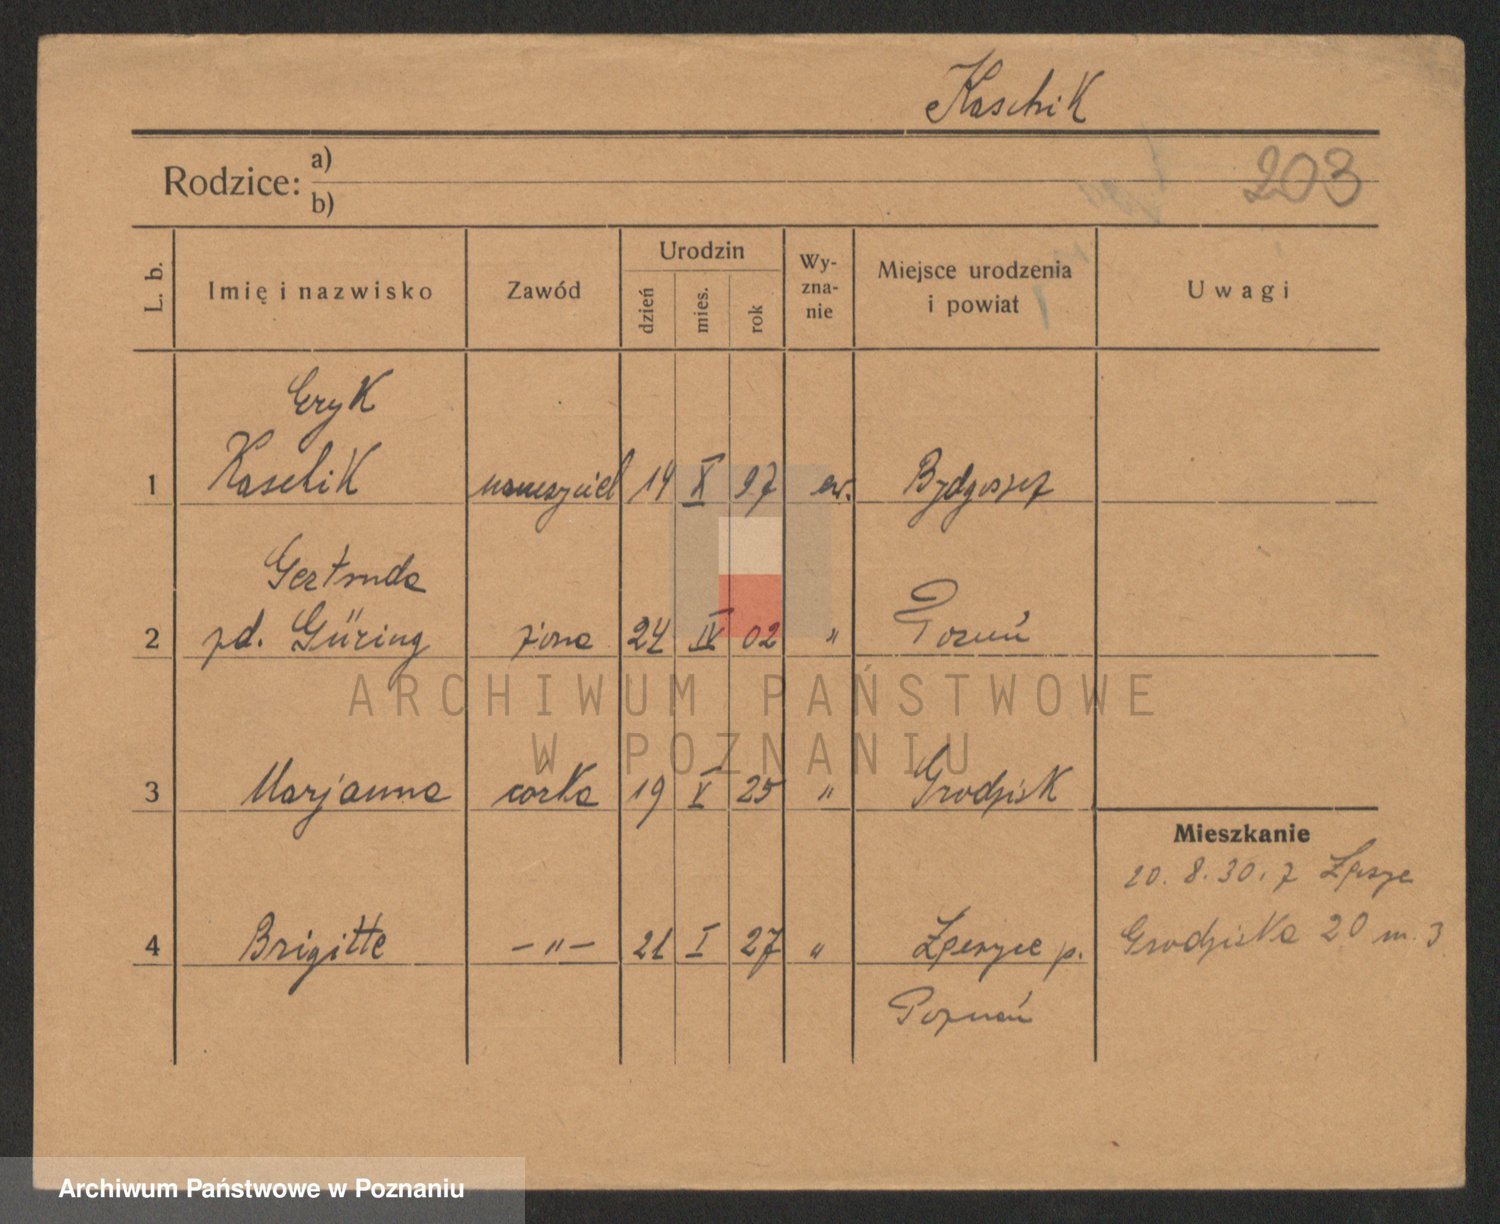 Kaschik
203
Rodzice: a)
b)
L. b.
Imię i nazwisko
Zawód
Urodzin
dzień
mies.
rok
Wy-
zna-
nie
Miejsce urodzenia
i powiat
Uwagi
Eryk
1 Kaschik nauczyciel 14 X 97 ew. Bydgoszcz
Gertruda
2 zd. Güring żona 24 IV 02 " Poznań
3 Marjanna corka 19 V 25 " Grodzisk
4 Brigitte – " – 21 I 27 "
p.
Poznań
Mieszkanie
20. 8. 30. z
Grodziska 20 m. 3
ARCHIWUM PAŃSTWOWE
W POZNANIU
Archiwum Państwowe w Poznaniu